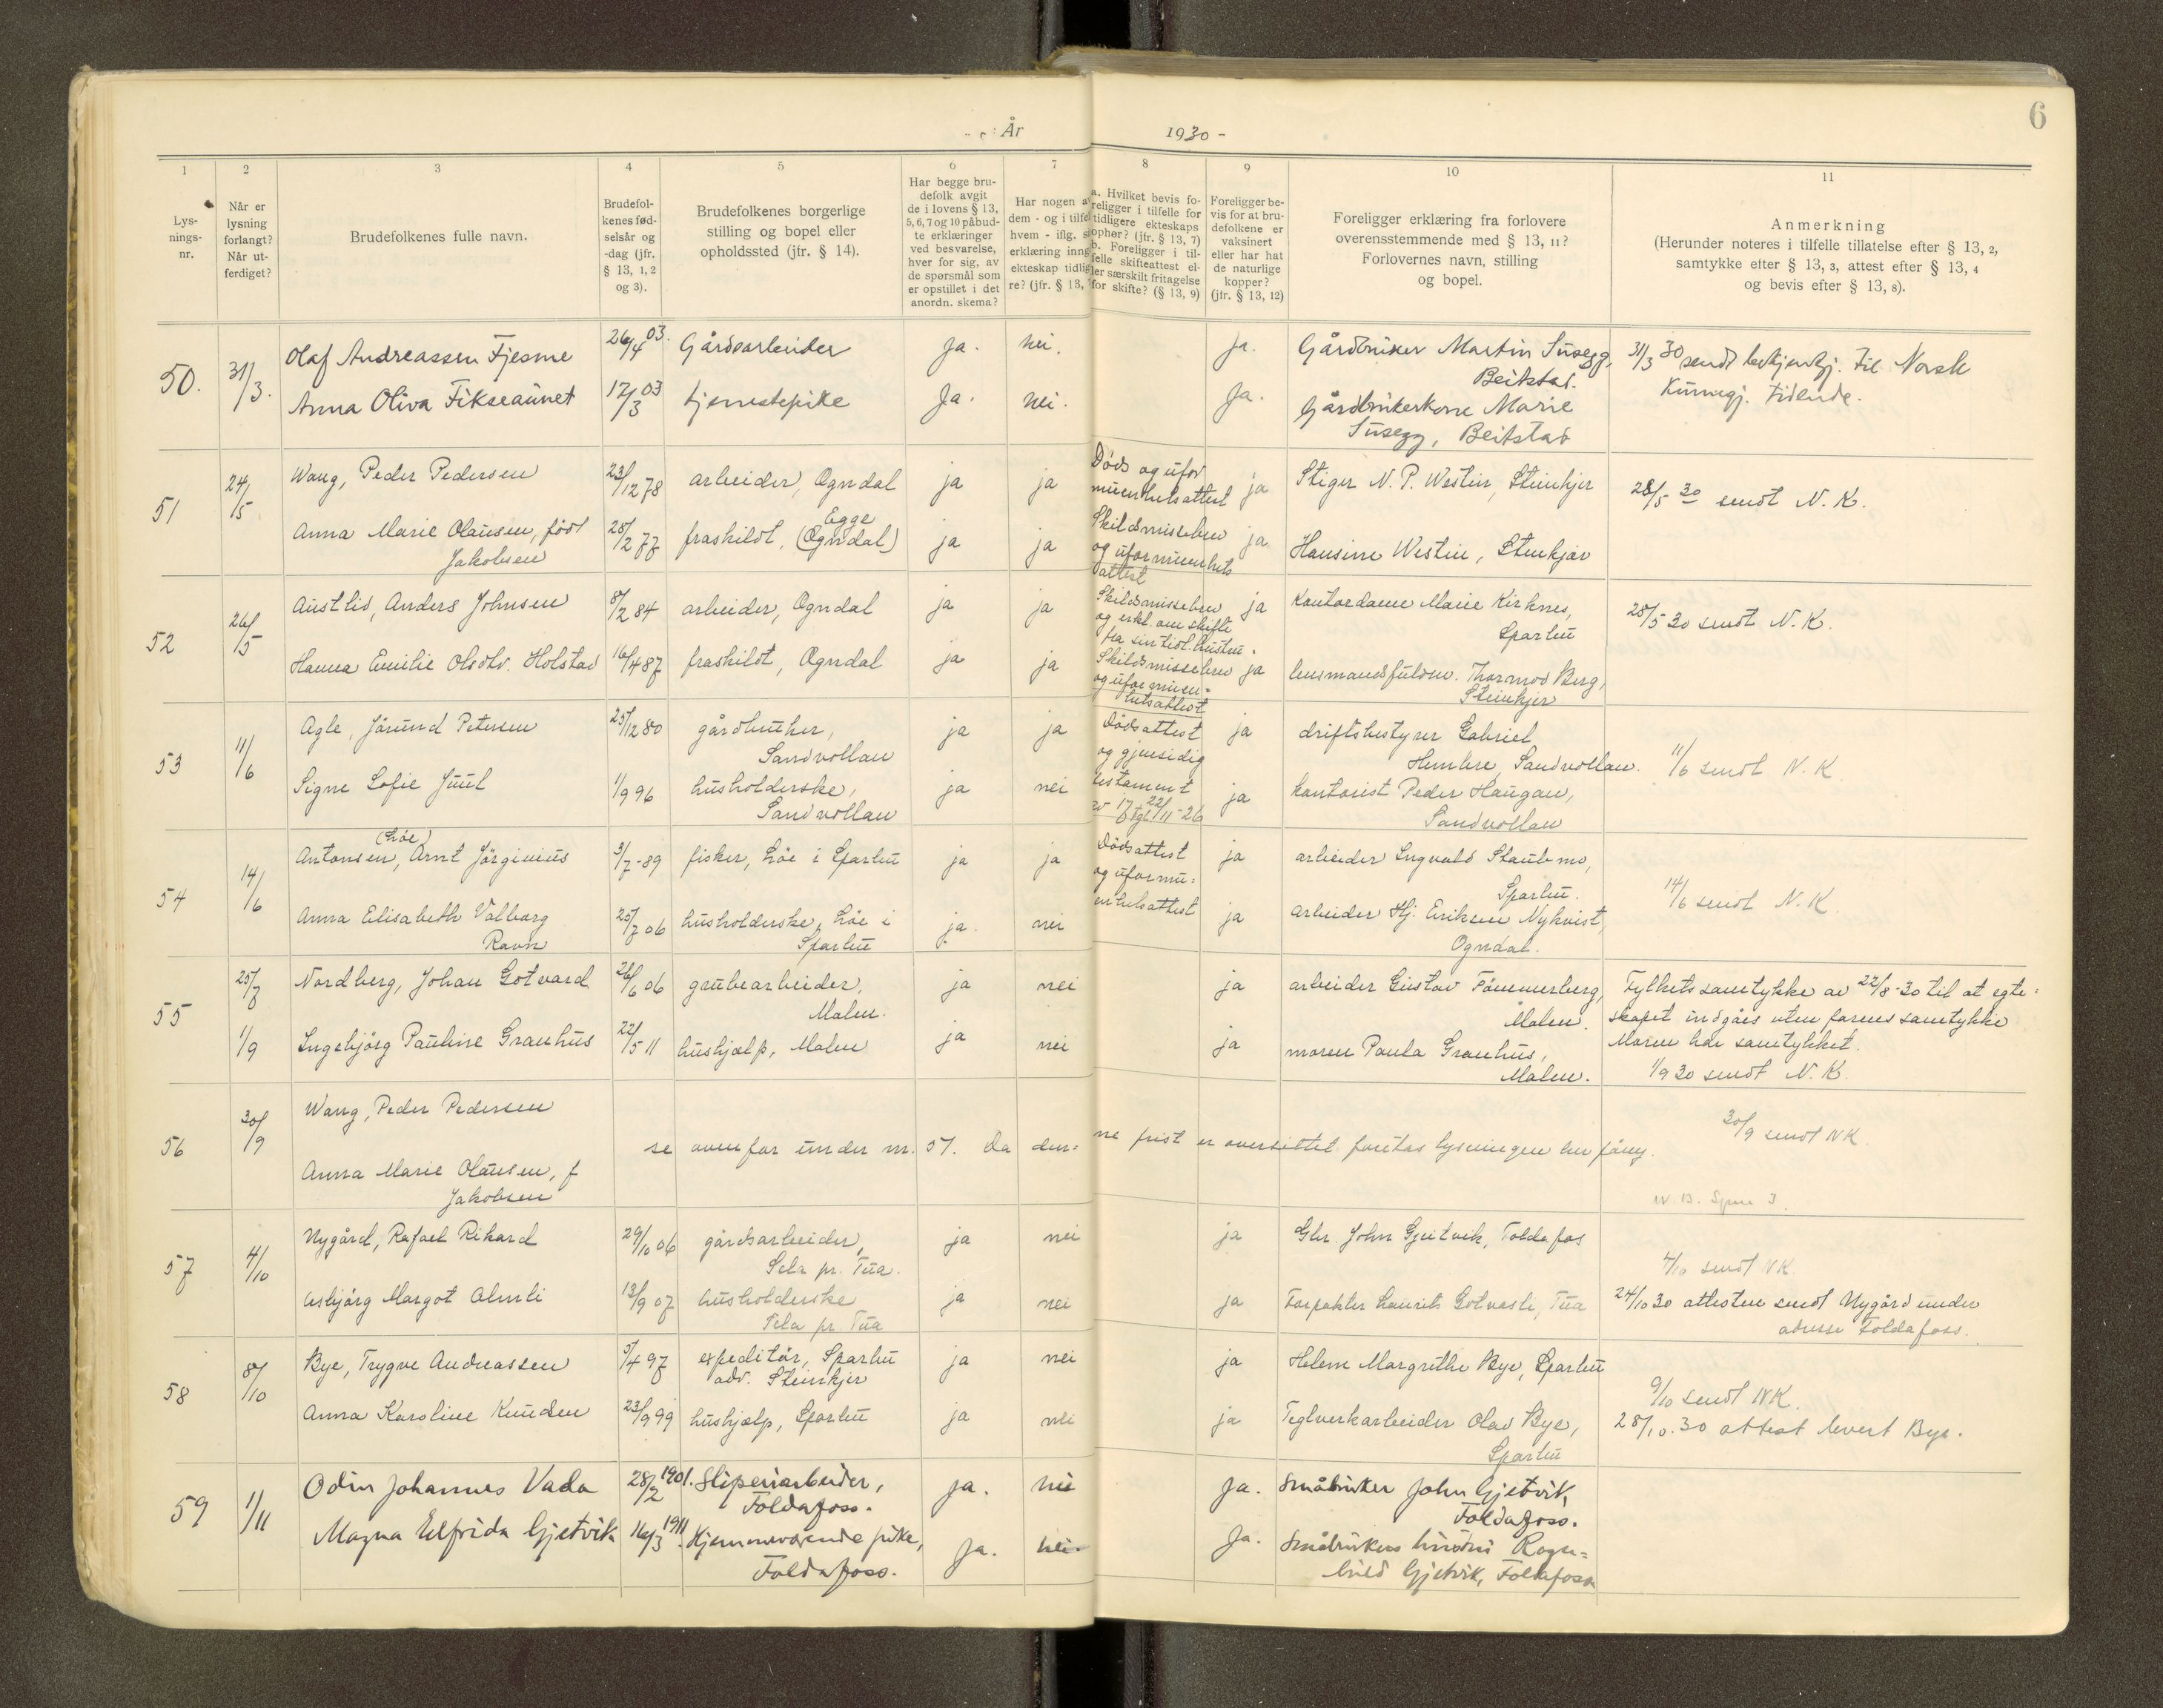 6
År 1930 -
1 2 3 4 5 6 7 8 9 10 11
Lys-
nings-
nr.
Når er
lysning
forlangt?
Når ut-
ferdiget?
Brudefolkenes fulle navn.
Brudefol-
kenes fød-
selsår og
-dag (jfr.
§ 13, 1, 2
og 3).
Brudefolkenes borgerlige
stilling og bopel eller
opholdssted (jfr. § 14).
Har begge bru-
defolk avgit
de i lovens § 13,
5, 6, 7 og 10 påbud-
te erklæringer
ved besvarelse,
hver for sig, av
de spørsmål som
er opstillet i det
anordn. skema?
Har nogen a
dem - og i tilfel
hvem - iflg. s
erklæring inng
ekteskap tidlig
re? (jfr. § 13,
a. Hvilket bevis fo-
religger i tilfelle for
tidligere ekteskaps
ophør? (jfr. § 13, 7)
b. Foreligger i til-
felle skifteattest el-
ler særskilt fritagelse
for skifte? (§ 13, 9)
Foreligger be-
vis for at bru-
defolkene er
vaksinert
eller har hat
de naturlige
kopper?
(jfr. § 13, 12)
Foreligger erklæring fra forlovere
overensstemmende med § 13, 11?
Forlovernes navn, stilling
og bopel.
Anmerkning
(Herunder noteres i tilfelle tillatelse efter § 13, 2,
samtykke efter § 13, 3, attest efter § 13, 4
og bevis efter § 13, 8).
50. 31/3.
Olaf Andreassen Fjesme 26/4 03. Gårdsarbeider Ja. Nei. Ja. Gårdbruker Martin Susegg,
Beitstad.
Anna Oliva Fikseaunet 17/3 03 tjenestepike Ja. Nei. Ja. Gårdbrukerkone Marie
Susegg, Beitstad
31/3 30 sendt bekjentgj. til Norsk
Kunngj. tidende.
51 24/5
Wang, Peder Pedersen 23/12 78 arbeider, Ogndal ja ja Døds og ufor
muenhetsattest ja Stiger N. P. Westin, Steinkjer
Anna Marie Olausen, født
Jakobsen 28/2 77 fraskildt, (Ogndal) Egge ja ja Skilsmissebrev
og uformuenhets
attest ja Hansine Westin, Stenkjær
28/5 30 sendt N. K.
52 26/5
Austlid, Anders Johnsen 8/2 84 arbeider, Ogndal ja ja Skilsmissebrev
og erkl. om skifte
fra sin tidl. hustru. ja Kontordame Marie Kirknes,
Sparbu
Hanna Emilie Olsdtr. Holstad 16/4 87 fraskildt, Ogndal ja ja Skildsmissebrev
og uformuen-
hetsattest ja lensmandsfuldm. Thormod Berg,
Steinkjer
28/5 30 sendt N. K.
53 11/6
Agle, Jörund Petersen 25/12 80 gårdbruker,
Sandvollan ja ja Dödsattest
og gjensidig
testament
ja driftsbestyrer Gabriel
Hembre, Sandvollan.
Signe Sofie Juul 1/9 96 husholderske,
Sandvollan ja nei ja kontorist Peder Haugan,
Sandvollan
11/6 sendt N. K.
54 14/6
Antonsen, (Løe) Arnt Jörginius 3/7-89 fisker, Løe i Sparbu ja ja Dödsattest
og uformu-
enhetsattest ja arbeider Ingvald Staulmo,
Sparbu.
Anna Elisabeth Valborg
Ravn 25/7 06 husholderske, Løe i
Sparbu ja. nei ja arbeider Hj. Eriksen Nykvist,
Ogndal.
14/6 sendt N. K.
55 25/7 1/9
Nordberg, Johan Gotvard 26/6 06 grubearbeider,
Malm. ja nei ja arbeider Gustav Fömmerberg,
Malm.
Ingebjörg Pauline Granhus 22/5 11 hushjælp, Malm ja nei ja moren Paula Granhus,
Malm.
Fylkets samtykke av 22/8-30 til at egte-
skapet indgåes uten farens samtykke
Moren har samtykket.
1/9 30 sendt N. K.
56 30/9
Wang, Peder Pedersen
se ovenfor under nr. 51. Da den-ne frist er oversittet foretas lysningen her påny.
Anna Marie Olausen, f
Jakobsen
30/9 sendt NK
57 4/10
Nygård, Rafael Rikard 29/10 06 gårdsarbeider,
Sela pr. Tua. ja nei ja Gbr. John Gjetvik, Foldafos
Asbjörg Margot Almli 13/9 07 husholderske
Sela pr. Tua ja nei ja Forpakter Laurits Gotvasli, Tua
4/10 sendt NK.
24/10 30 attesten sendt Nygård under
adresse Foldafoss.
58 8/10
Bye, Trygve Andreassen 5/4 97 expeditör, Sparbu
adr. Steinkjer ja nei ja Helene Margrethe Bye, Sparbu
Anna Karoline Knudsen 23/9 99 hushjælp, Sparbu ja nei ja Teglverkarbeider Olav Bye,
Sparbu
9/10 sendt NK.
28/10.30 attest levert Bye.
59 1/11
Odin Johannes Vada 28/2 1901. Sliperiarbeider,
Foldafoss. Ja. Nei Ja. Småbruker John Gjetvik,
Foldafoss.
Magna Elfrida Gjetvik 16/3 1911. Hjemmeværende pike,
Foldafoss. Ja. Nei Ja. Småbrukers hustru Ragn-
hild Gjetvik, Foldafoss